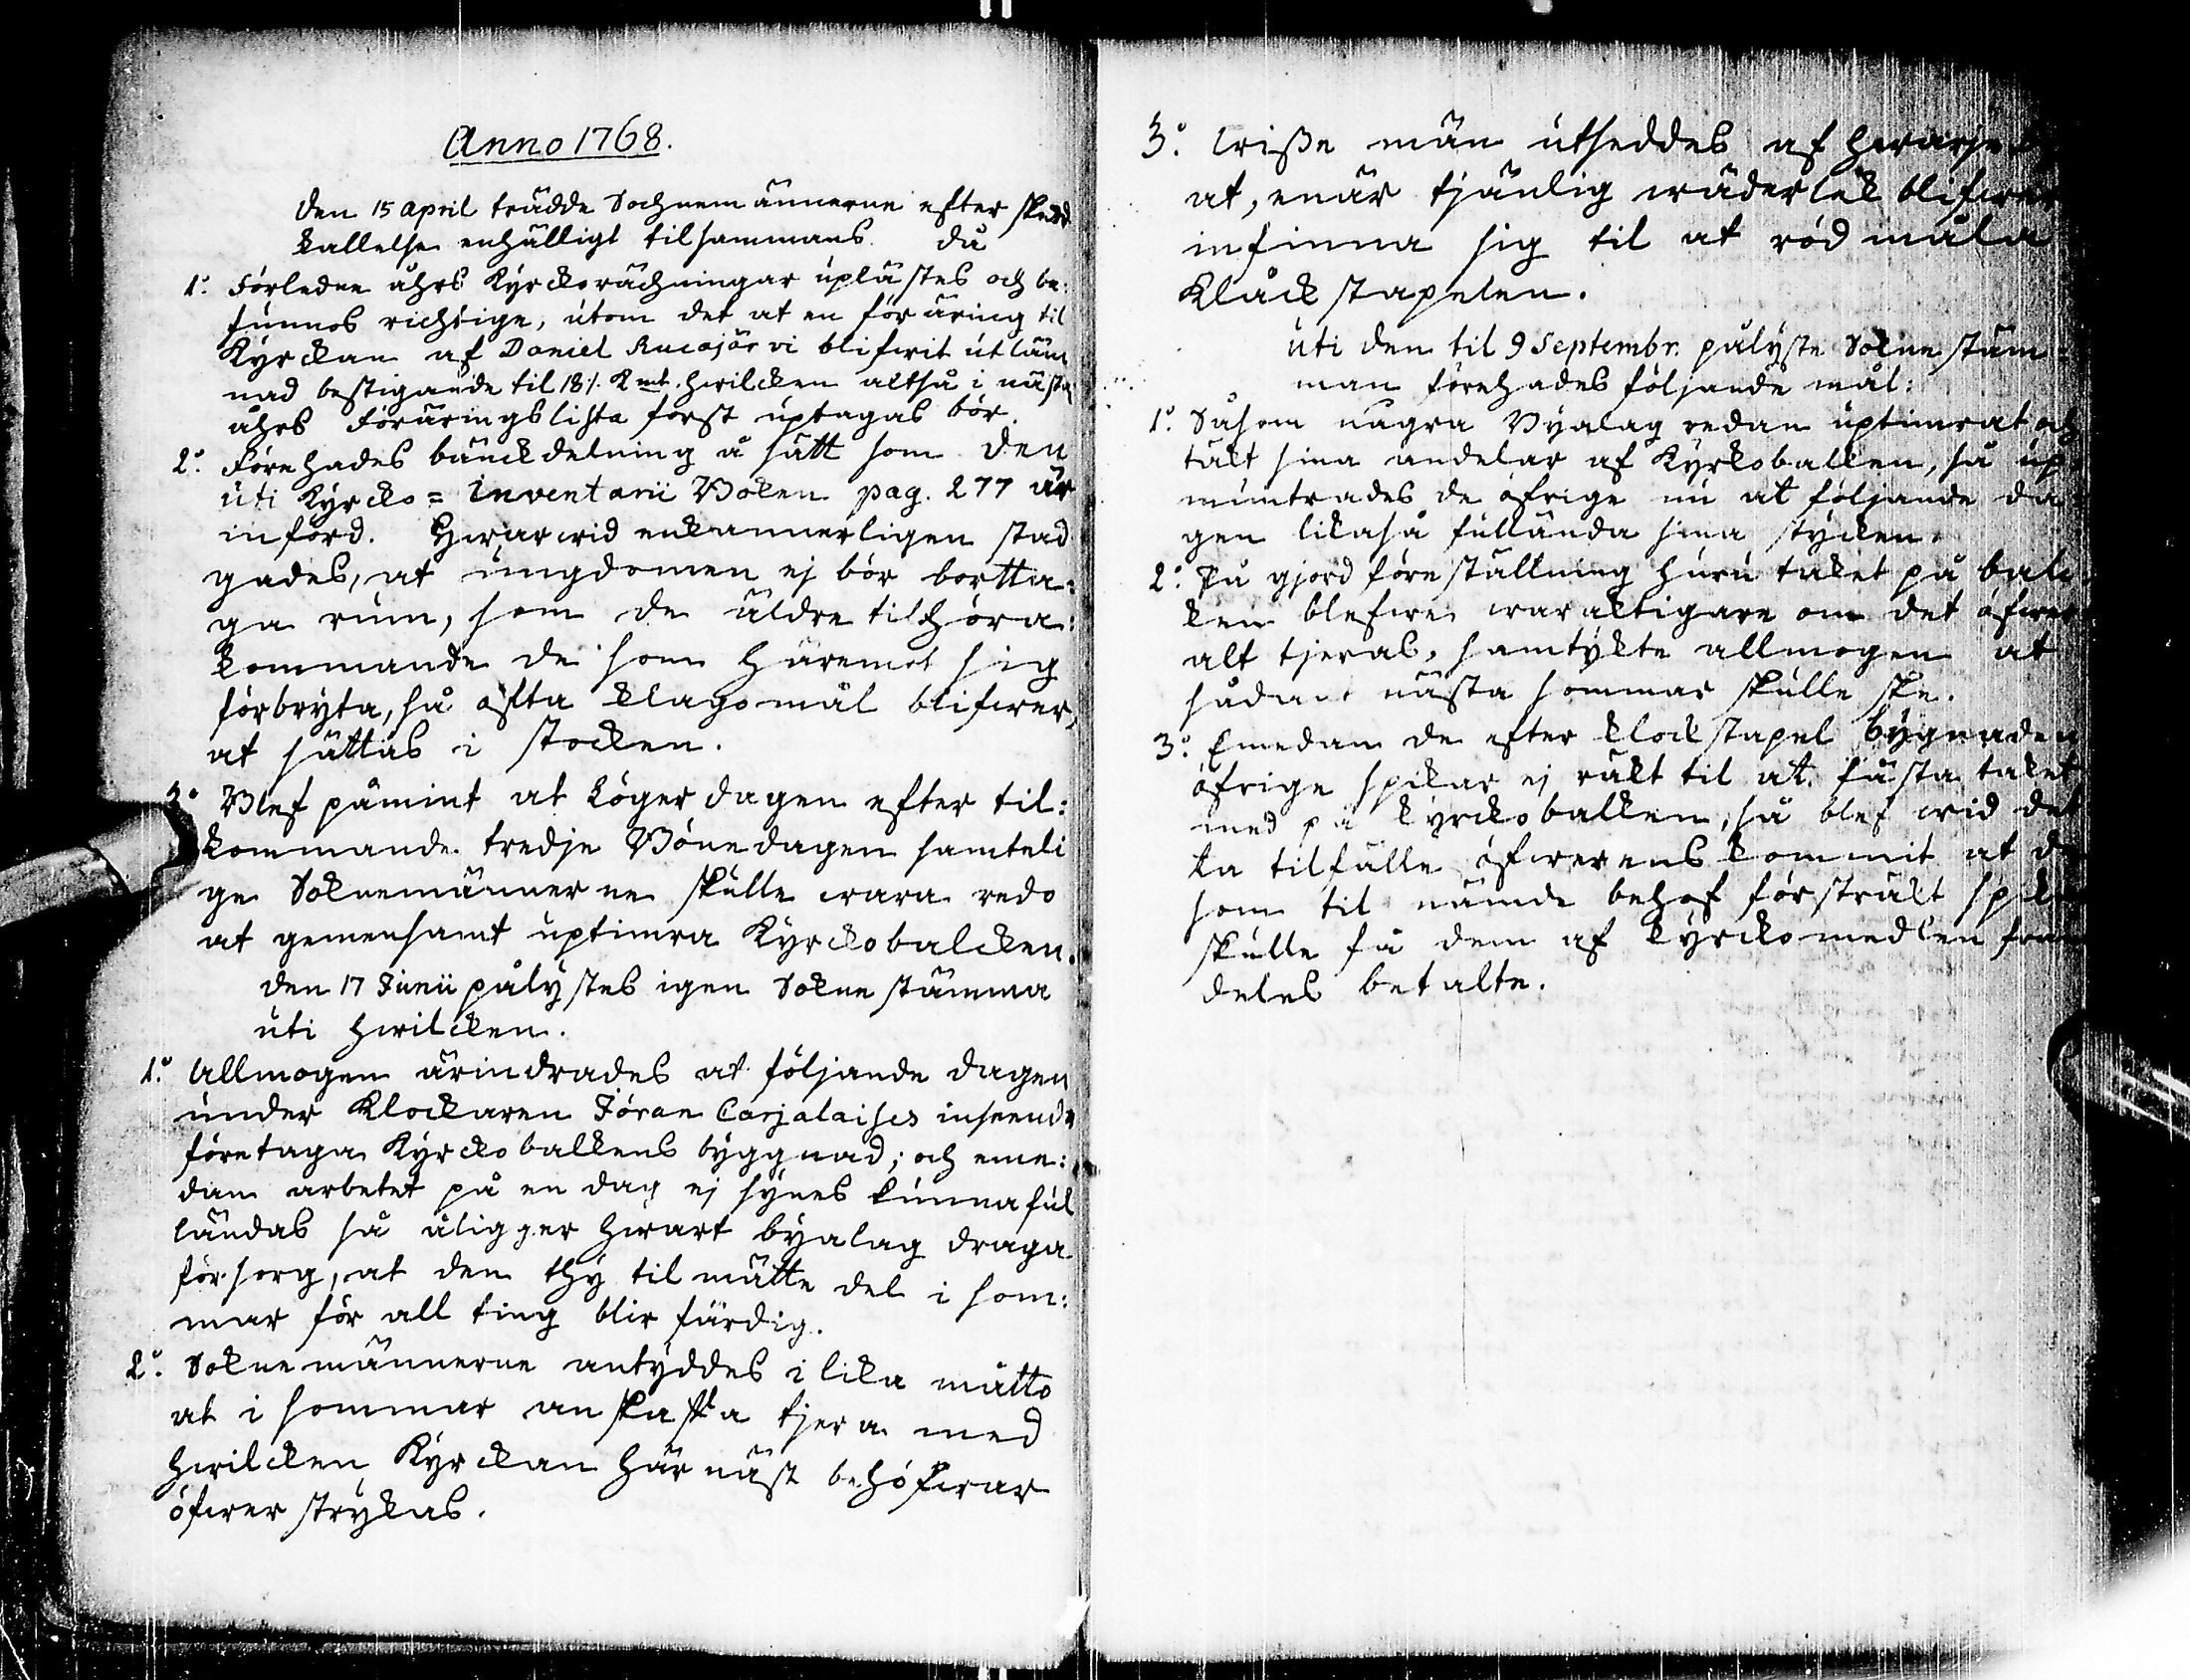 Anno 1768.
Den 15 April trädde Sochnemännerne efter skedd
kallelse enhälligt tilsammans. då
1:o Förledne åhrs Kyrckorächningar uplästes och be:
funnos richtige, utom det at en föräring til
Kyrckan af Daniel Rucajärvi blifwit utläm
nad bestigande til 18 /. Kmt. hwilcken altså i nästa
åhrs Föräringslista först uptagas bör.
2:o Förehades bänckdelning å sätt som den
uti Kyrcko = Inventarii Boken pag. 277 är
införd. Hwarwid enkannerligen stad
gades, at ungdomen ej bör bortta:
ga rum, som de äldre tilhöra:
kommande de som häremot sig
förbryta, så ofta klagomål blifwer,
at sättias i stocken.
3:o Blef påmint at Lögerdagen efter til:
kommande tredje Bönedagen samteli
ge Soknemännerne skulle wara redo
at gemensamt uptimra Kyrckobalcken.
Den 17 Junii pålystes igen Sokne stämma
uti hwilcken.
1:o Allmogen ärindrades at följande dagen
under Klockaren Jöran Carjalaises inseende
företaga Kyrckobalkens byggnad; och eme:
dan arbetet på en dag ej synes kunna ful
ländas så åligger hwart byalag draga
försorg, at den thy tilmätte del i som:
mar för all ting blir färdig.
2:o Soknemännerne antyddes i lika måtto
at i sommar anskaffa tjera med
hwilcken Kyrckan härnäst behöfwer
öfwer strykas.
3:o Wisse män utseddes af hwarje
at, enär tjänlig wäderlek blifwer
infinna sig til at rödmåla
Klåckstapelen.
Uti den til 9 Septembr. pålyste Sokne stäm=
man förehades följande mål:
1:o Såsom några Byalag redan uptimrat och
täkt sina andelar af Kyrkobalken, så up
muntrades de öfrige nu at följande da
gen likaså fullända sina stycken.
2:o På gjord föreställning huru taket på bal
ken blefwe waraktigare om det öfwer
alt tjeras, samtykte allmogen at
sådant nästa sommar skulle ske.
3:o Emedan de efter klockstapel bygnaden
öfrige spikar ej räkt til at fästa taket
med på kyrckobalken, så blef wid det
ta tilfälle öfwerenskommit at de
som til nämde behof försträkt spik
skulle få dem af kyrckomedlen fram
deles betalte.